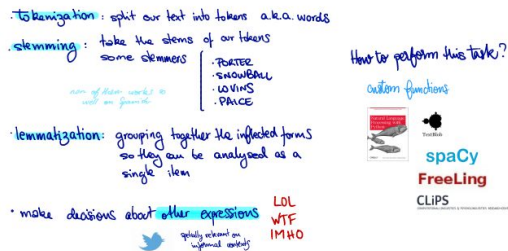 · tokenization : split our text into tokens a.k.a. words
· stemming : take the stems of our tokens
some stemmers
· PORTER
· SNOWBALL
· LOVINS
· PAICE
none of them works so
well on Spanish
· lemmatization: grouping together the inflected forms
so they can be analysed as a
single item
· make decisions about other expressions
LOL
WTF
IMHO
specially relevant on
informal contexts
How to perform this task?
custom functions
Natural Language
Processing with
Python
TextBlob
spaCy
FreeLing
CLiPS